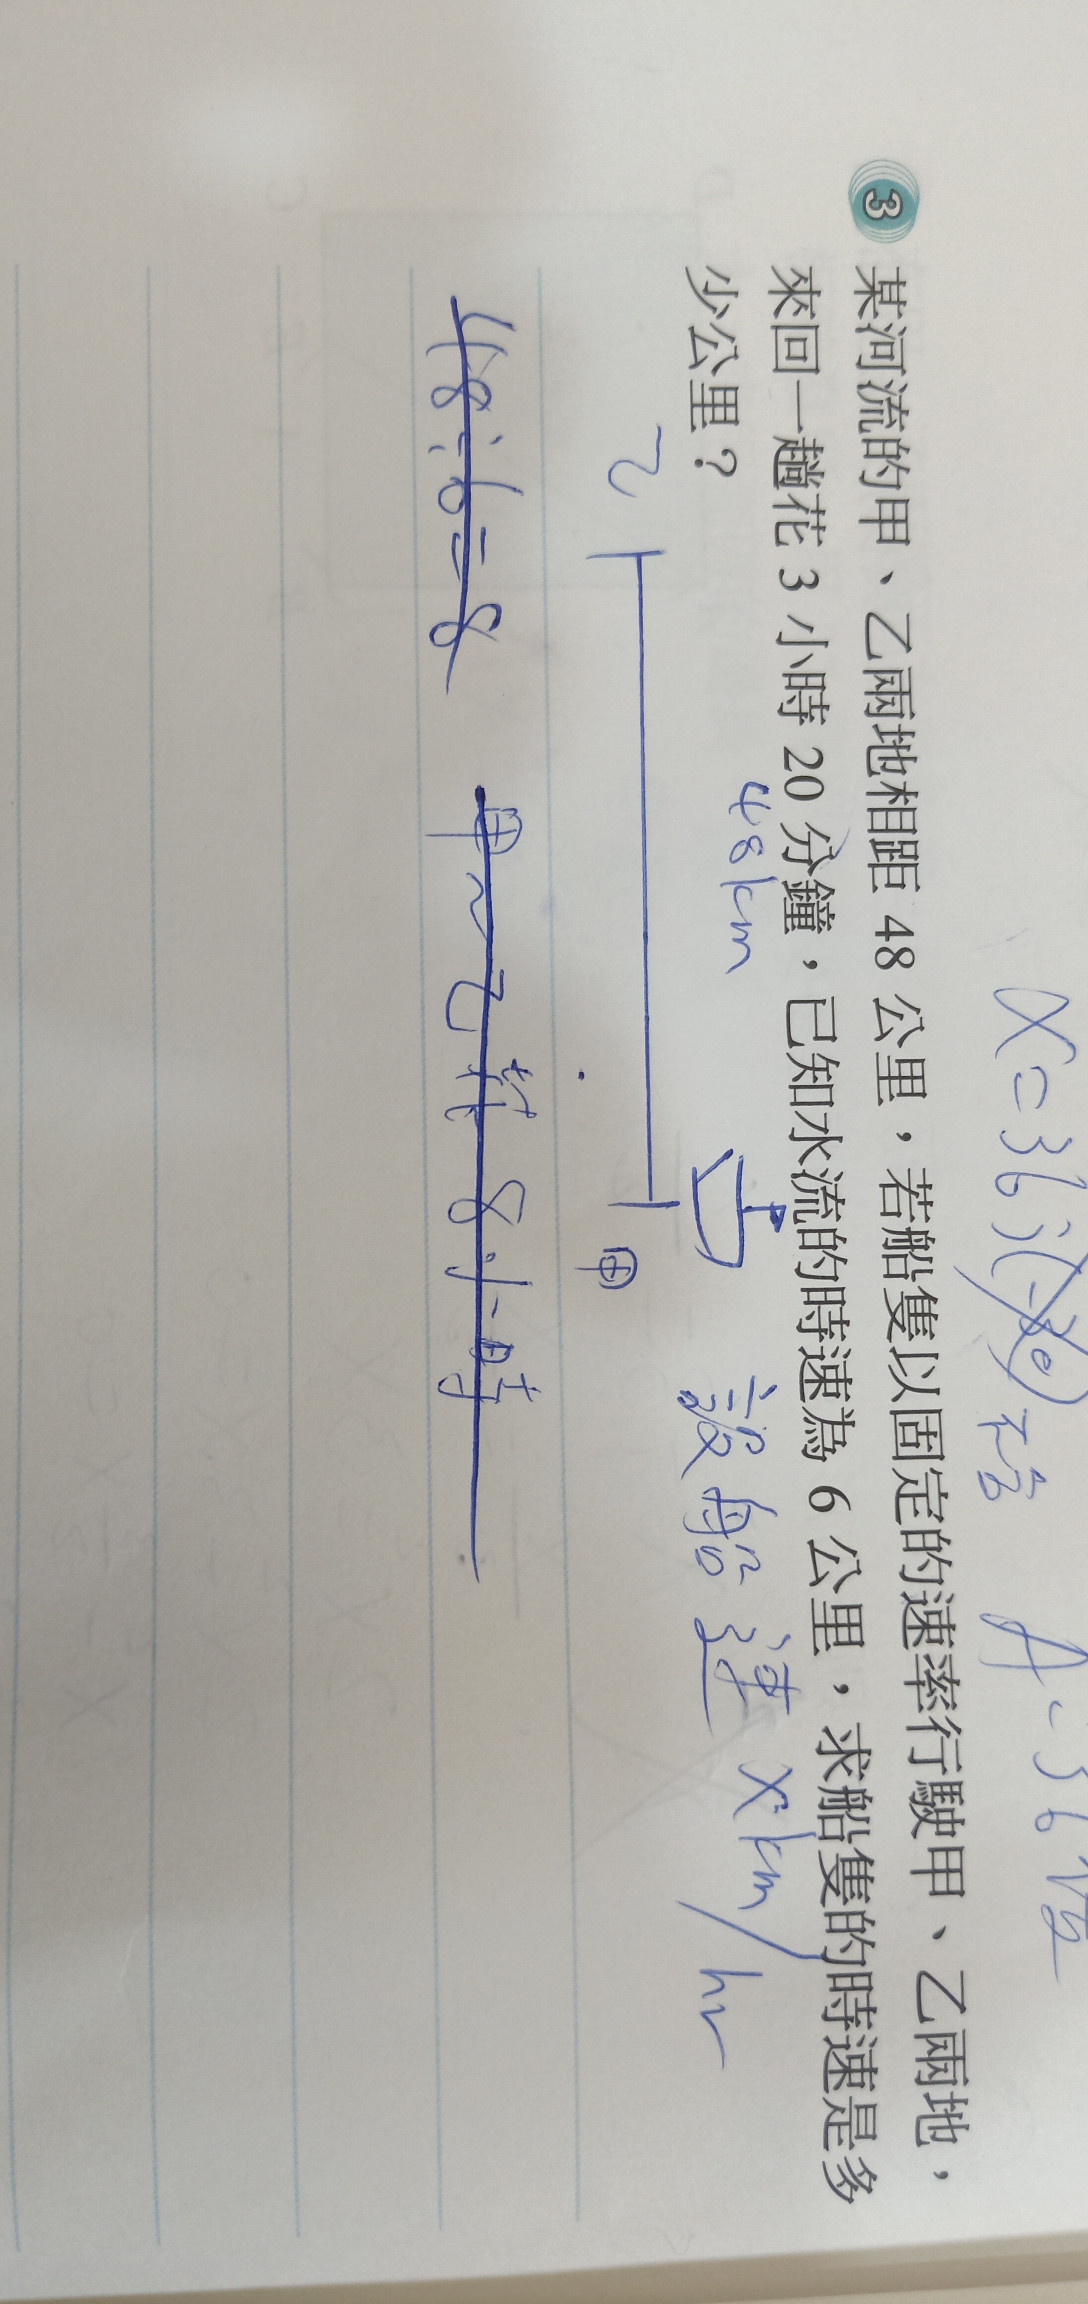 x=36;(-30)不合 A:36
3 某河流的甲、乙兩地相距 48 公里，若船隻以固定的速率行駛甲、乙兩地，
來回一趟花 3 小時 20 分鐘，已知水流的時速為 6 公里，求船隻的時速是多
少公里？
48km
設船速 xkm/hr
乙 甲
48÷6=8 甲~乙花8小時